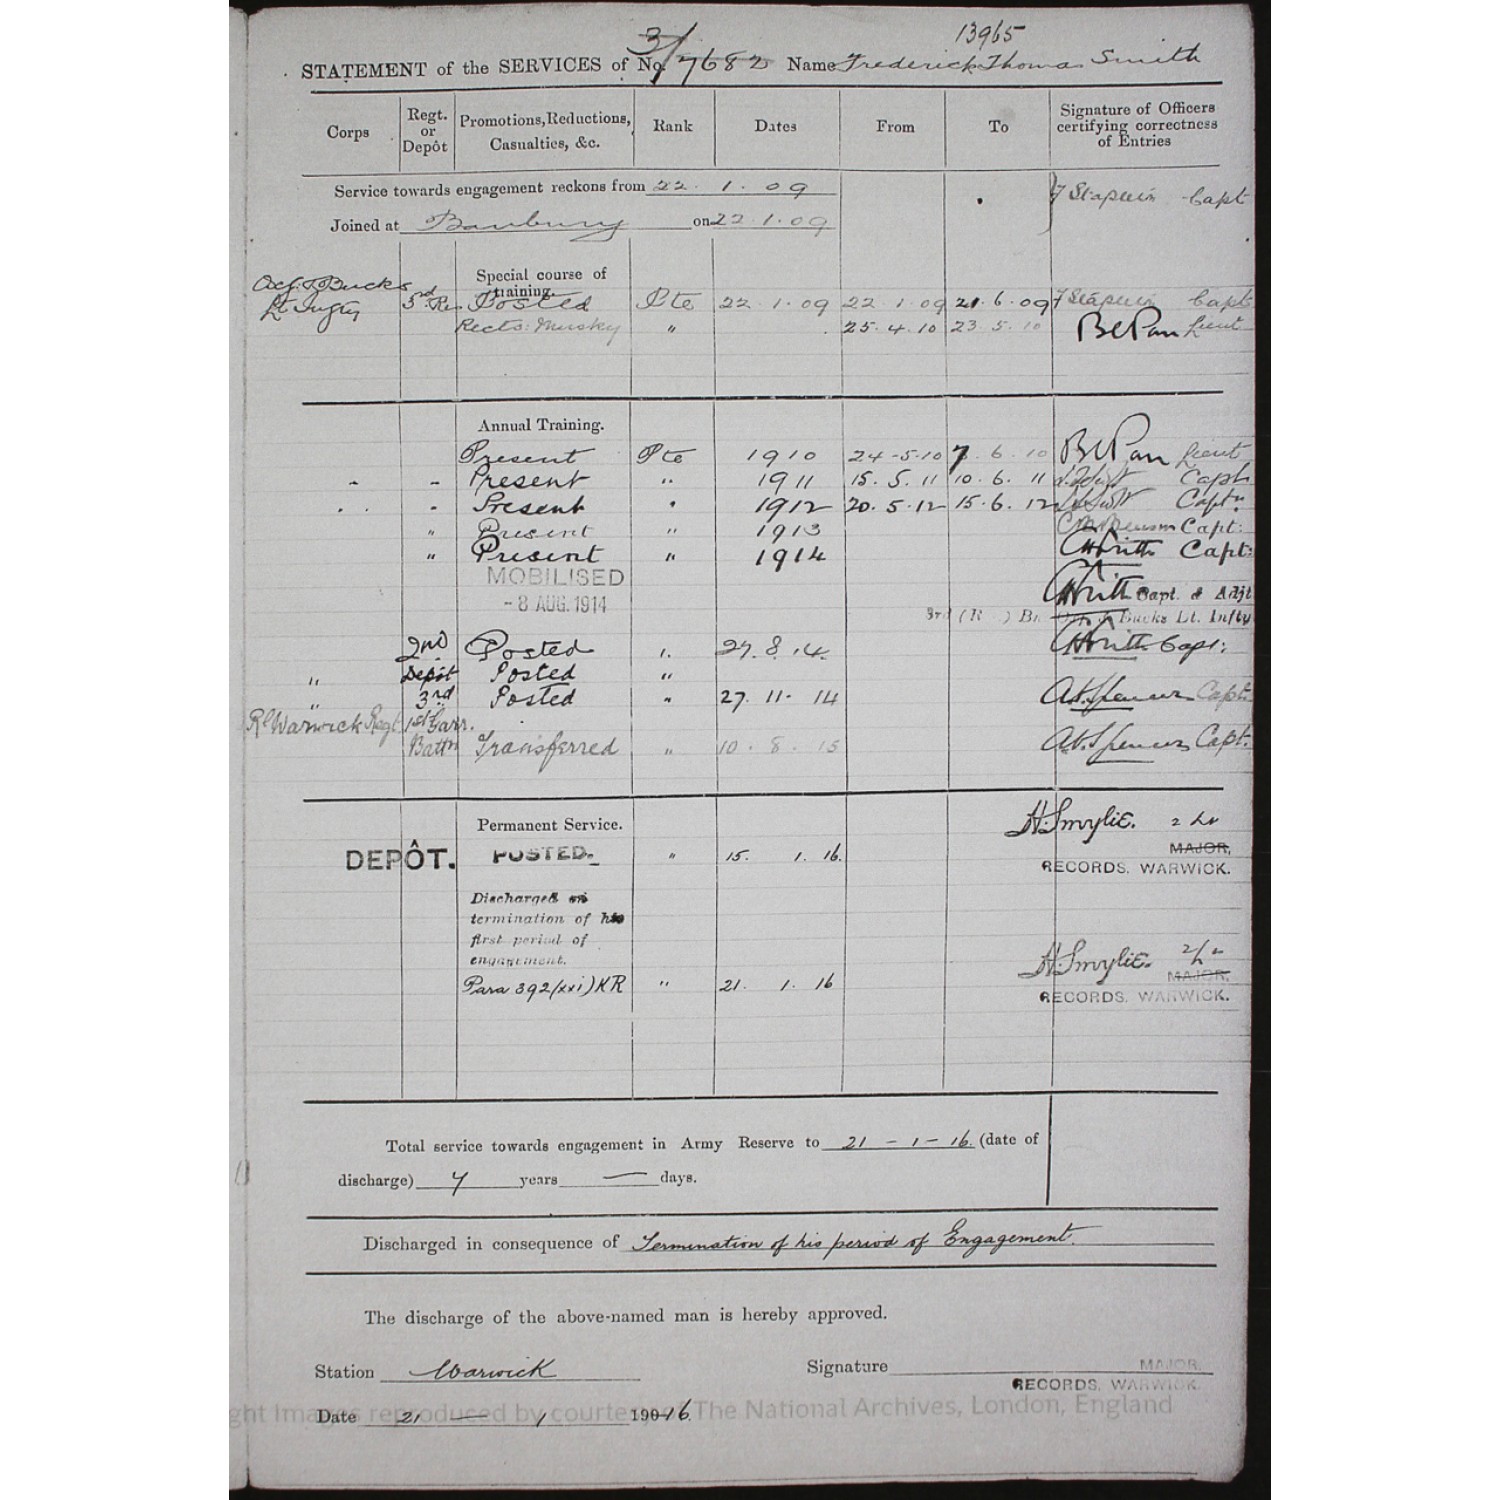 13965
STATEMENT of the SERVICES of No. 3/7682 Name Frederick Thomas Smith
Corps Regt. or Depôt Promotions, Reductions, Casualties, &c. Rank Dates From To Signature of Officers certifying correctness of Entries
Service towards engagement reckons from 22. 1. 09 Capt
Joined at Banbury on 22.1.09
Special course of training.
Oxf. & Bucks Lt. Infty 3rd Posted Pte 22.1.09 22.1.09 21.6.09 Capt
Rects: Musky " 25.4.10 23.5.10 Lieut
Annual Training.
Present Pte 1910 24-5-10 7.6.10 Lieut
Present " 1911 15.5.11 10.6.11 Capt
Present " 1912 20.5.12 15.6.12 Captn.
" Present " 1913 Capt:
" Present " 1914 Capt:
MOBILISED
- 8 AUG. 1914 Capt. & Adjt
3rd (R ) Bn Bucks Lt. Infty
2nd Posted " 27.8.14. Capt:
" Depôt Posted "
" 3rd Posted " 27.11-14 A. Spencer Capt.
Rl Warwick Regt 1st Garr. Battn Transferred " 10.8.15 A. Spencer Capt.
Permanent Service. H. Smylie. 2 Lt
MAJOR,
DEPÔT. POSTED. " 15. 1. 16. RECORDS. WARWICK.
Discharged on
termination of his
first period of
engagement. H. Smylie. 2/Lt
MAJOR,
Para 392 (xxi) KR " 21. 1. 16 RECORDS. WARWICK.
Total service towards engagement in Army Reserve to 21 - 1 - 16. (date of
discharge) 7 years — days.
Discharged in consequence of Termination of his period of Engagement.
The discharge of the above-named man is hereby approved.
Station Warwick Signature MAJOR,
RECORDS. WARWICK.
Date 21 — 1 190-16.
ght Images reproduced by courtesy of The National Archives, London, England